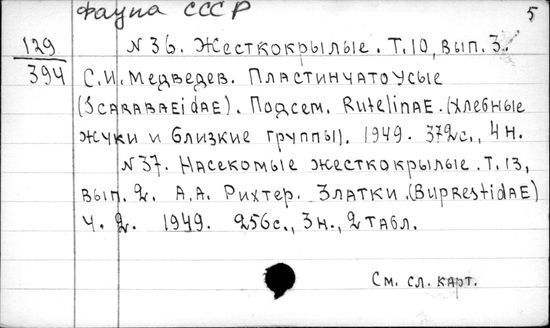 Фауна СССР
5
129
394
N 36. Жесткокрылые. Т.10, вып. 3.
С.И. Медведев. Пластинчатоусые
(Scarabaeidae). Подсем. Rutelinae. (Хлебные
жуки и близкие группы). 1949. 372с., 4н.
N 37. Насекомые жесткокрылые. Т. 13,
вып. 2. А.А. Рихтер. Златки. (Buprestidae)
Ч. 2. 1949. 256с., 3н., 2 табл.
См. сл. карт.